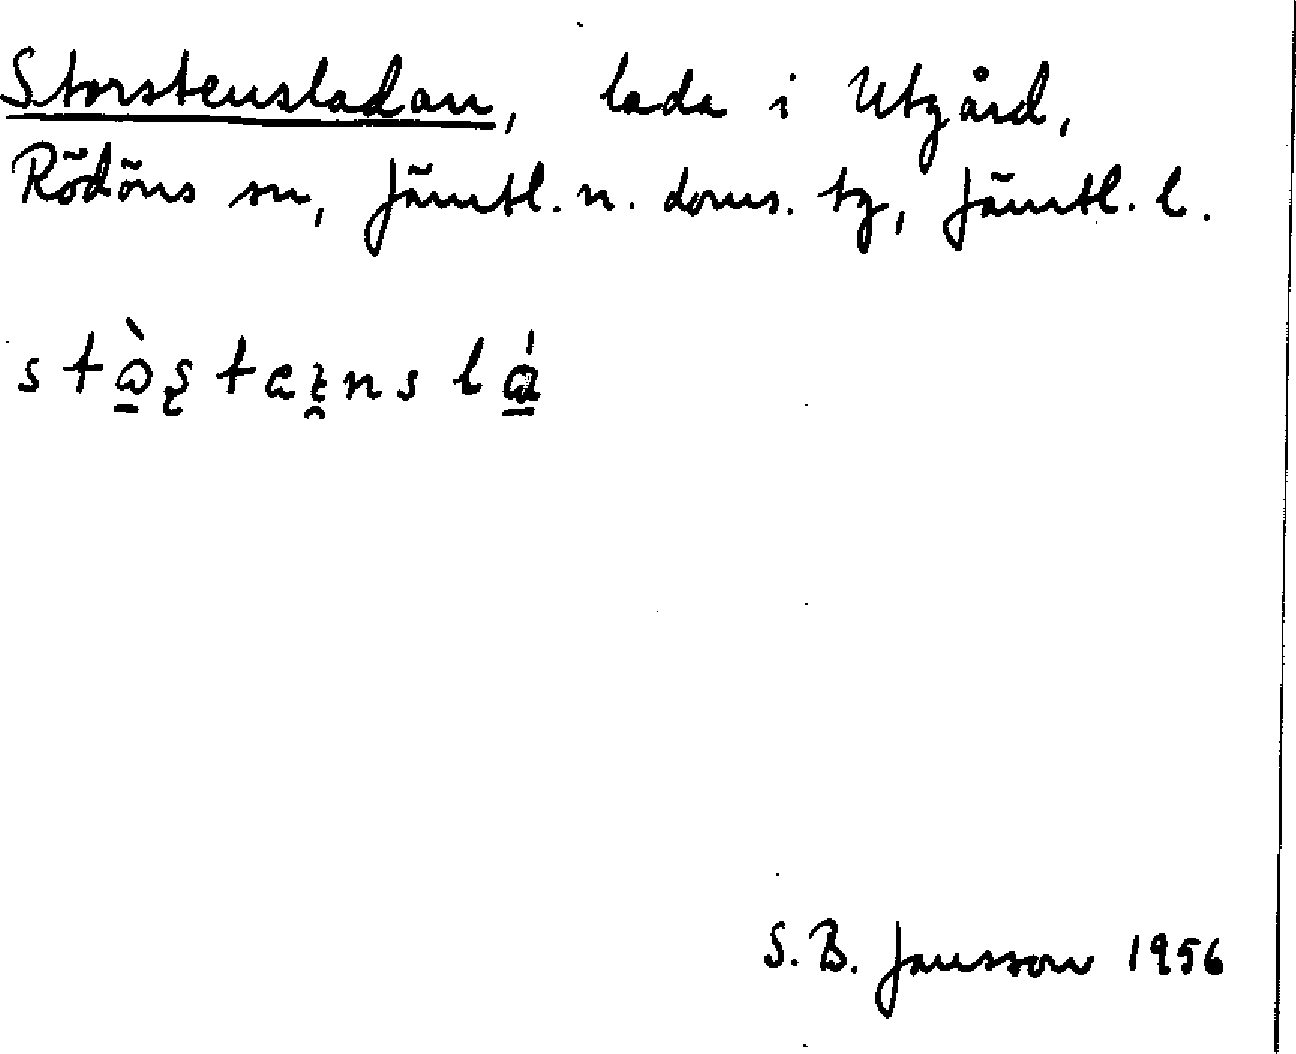 Storstensladan, lada i Utgård,
Rödöns sn, Jämtl. n. doms. tg, Jämtl. l.
S. B. Jansson 1956